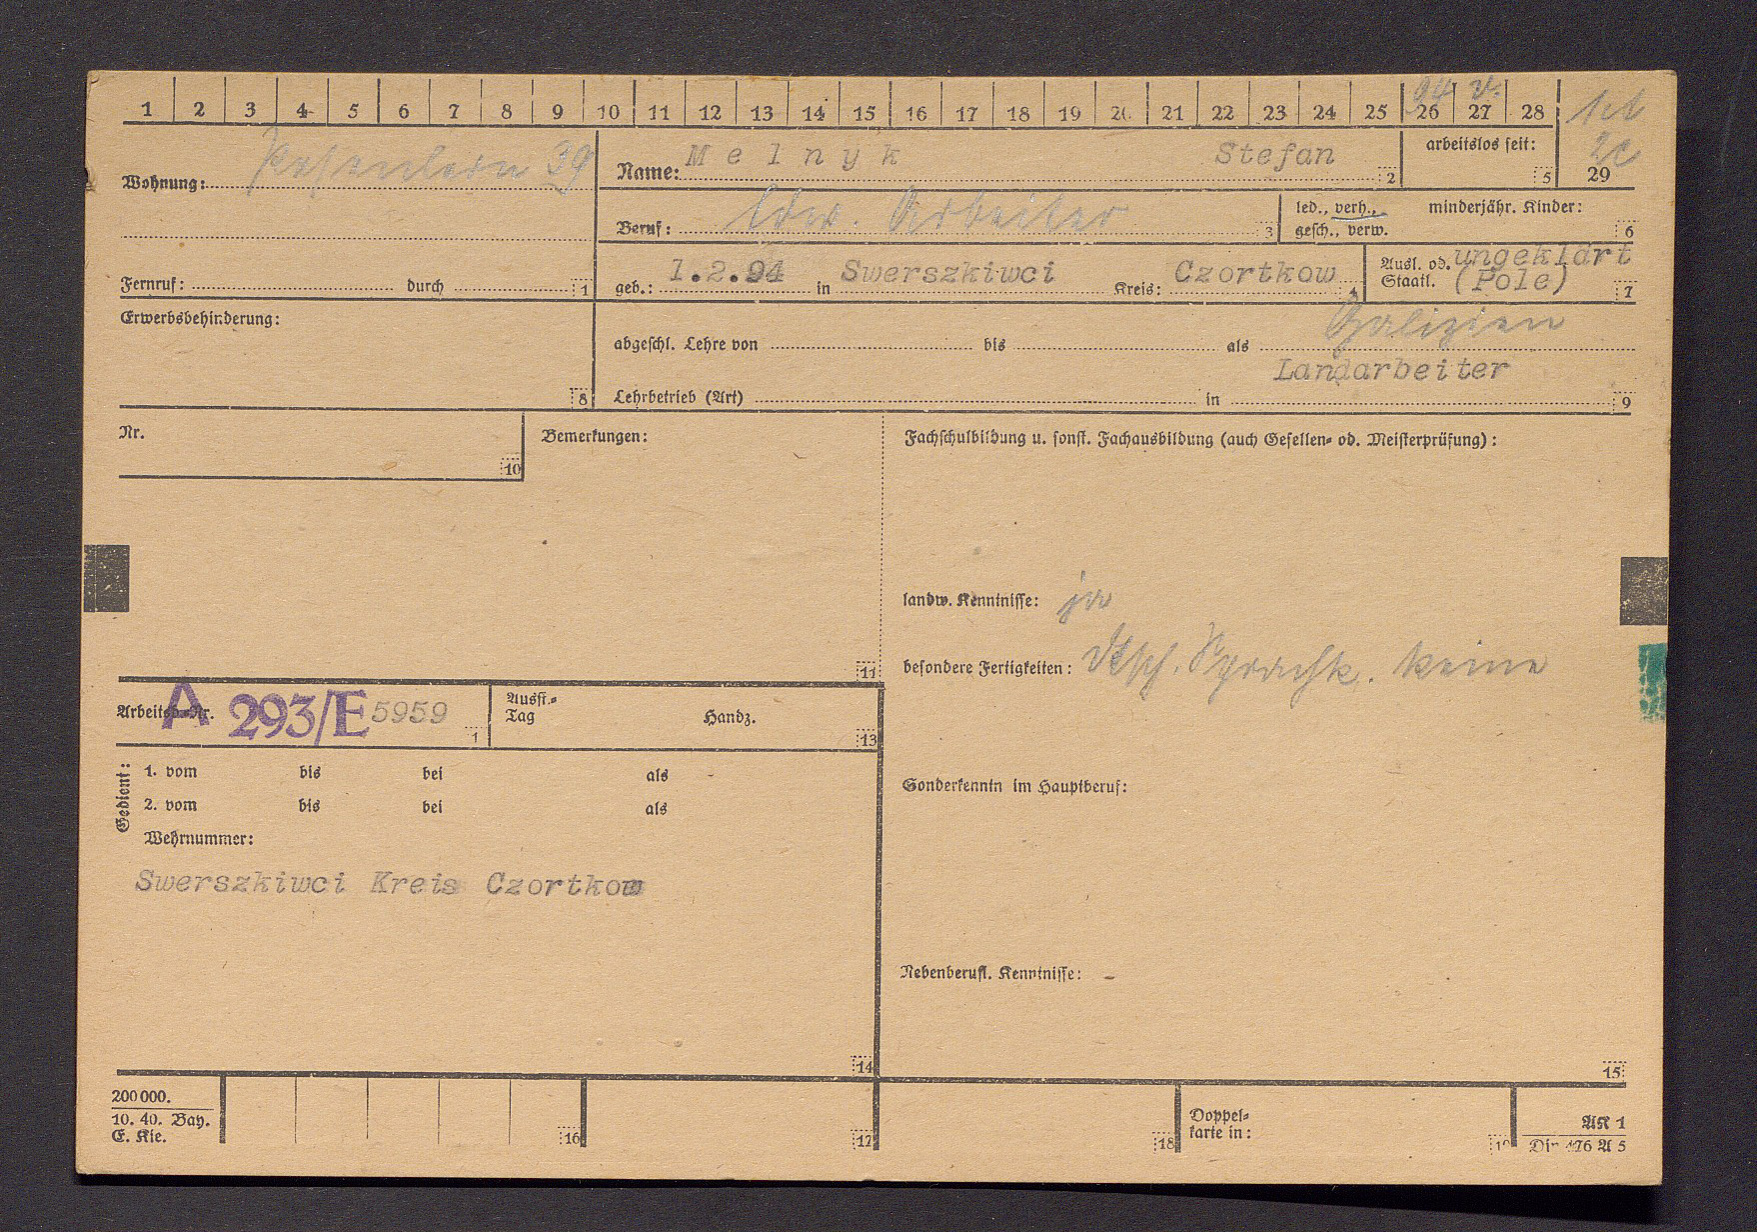 1 2 3 4 5 6 7 8 9 10 11 12 13 14 15 16 17 18 19 20 21 22 23 24 25 26 27 28
94 v.
29
Wohnung: 39
Name: Melnyk Stefan 2
arbeitslos seit: 5
Beruf: ldw. Arbeiter 3
led., verh., gesch., verw.
minderjähr. Kinder: 6
Fernruf: durch 1
geb.: 1.2.94 in Swerszkiwci Kreis: Czortkow 4
Ausl. od. Staatl. ungeklärt (Pole) 7
Erwerbsbehinderung: 8
Galizien
abgeschl. Lehre von bis als
Landarbeiter
Lehrbetrieb (Art) in 9
Nr. 10
Bemerkungen: 11
Fachschulbildung u. sonst. Fachausbildung (auch Gesellen- od. Meisterprüfung):
landw. Kenntnisse: ja
besondere Fertigkeiten: Dtsch. Sprachk. keine
Arbeitsb.-Nr. A 293/E 5959 1
Ausst.-Tag Handz. 13
Gedient:
1. vom bis bei als -
2. vom bis bei als
Wehrnummer:
Swerszkiwci Kreis Czortkow
14
Sonderkenntn im Hauptberuf:
Nebenberufl. Kenntnisse: -
15
200 000.
10. 40. Bay.
E. Kie.
16 17 18
Doppelkarte in: 19
AK 1
Din 476 A 5